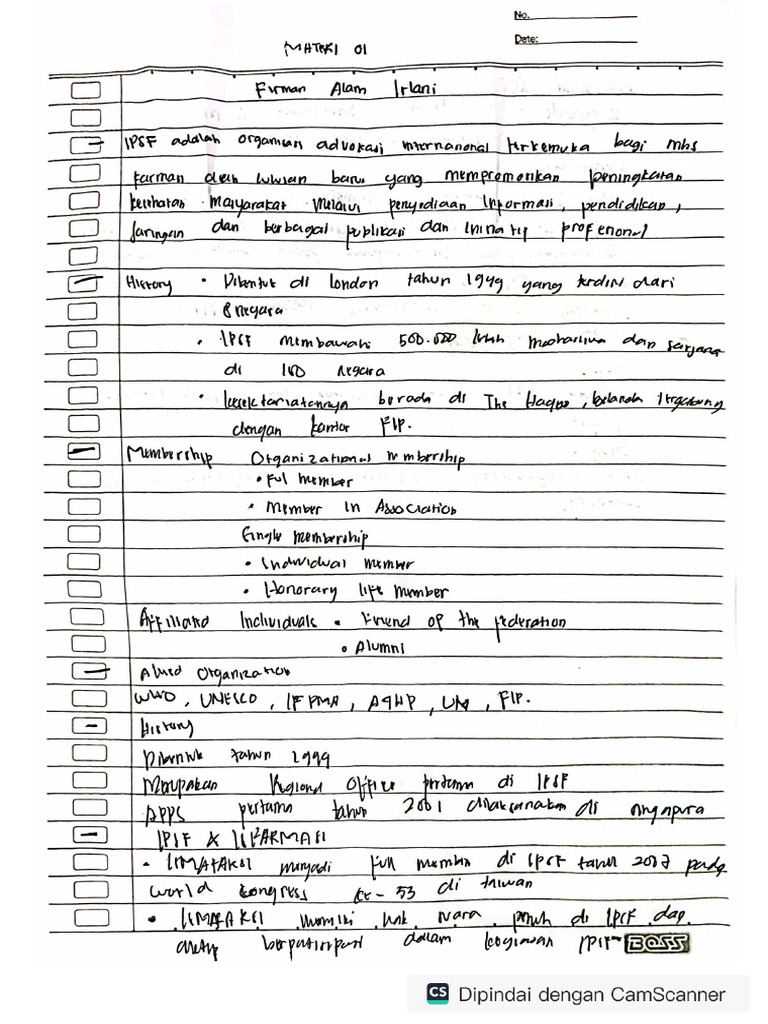 No.
Date:
MATERI 01
Firman Alam Irlani
IPSF adalah organisasi advokasi internasional terkemuka bagi mhs
farmasi dan lulusan baru yang mempromosikan peningkatan
kesehatan masyarakat melalui penyediaan informasi, pendidikan,
jaringan dan berbagai publikasi dan inisiatif profesional
History • Dibentuk di London tahun 1949 yang terdiri dari
8 negara
• IPSF membawahi 500.000 lebih mahasiswa dan sarjana
di 100 negara
• kesekretariatannya berada di The Hague, belanda tergabung
dengan kantor FIP.
Membership Organizational membership
• Full member
• Member in Association
Single membership
• Individual member
• Honorary life member
Affiliated Individuals • Friend of the federation
• Alumni
Allied Organization
WHO, UNESCO, IFPMA, UN, FIP.
History
Dibentuk tahun 1999
Merupakan Regional Office pertama di IPSF
APPS pertama tahun 2001 dilaksanakan di singapura
IPSF X ISMAFARSI
• menjadi full member di IPSF tahun 2007 pada
world kongress ke-53 di taiwan
• memiliki hak suara penuh di IPSF dan
berpatisipasi dalam kegiatan IPSF
BOSS
CS Dipindai dengan CamScanner